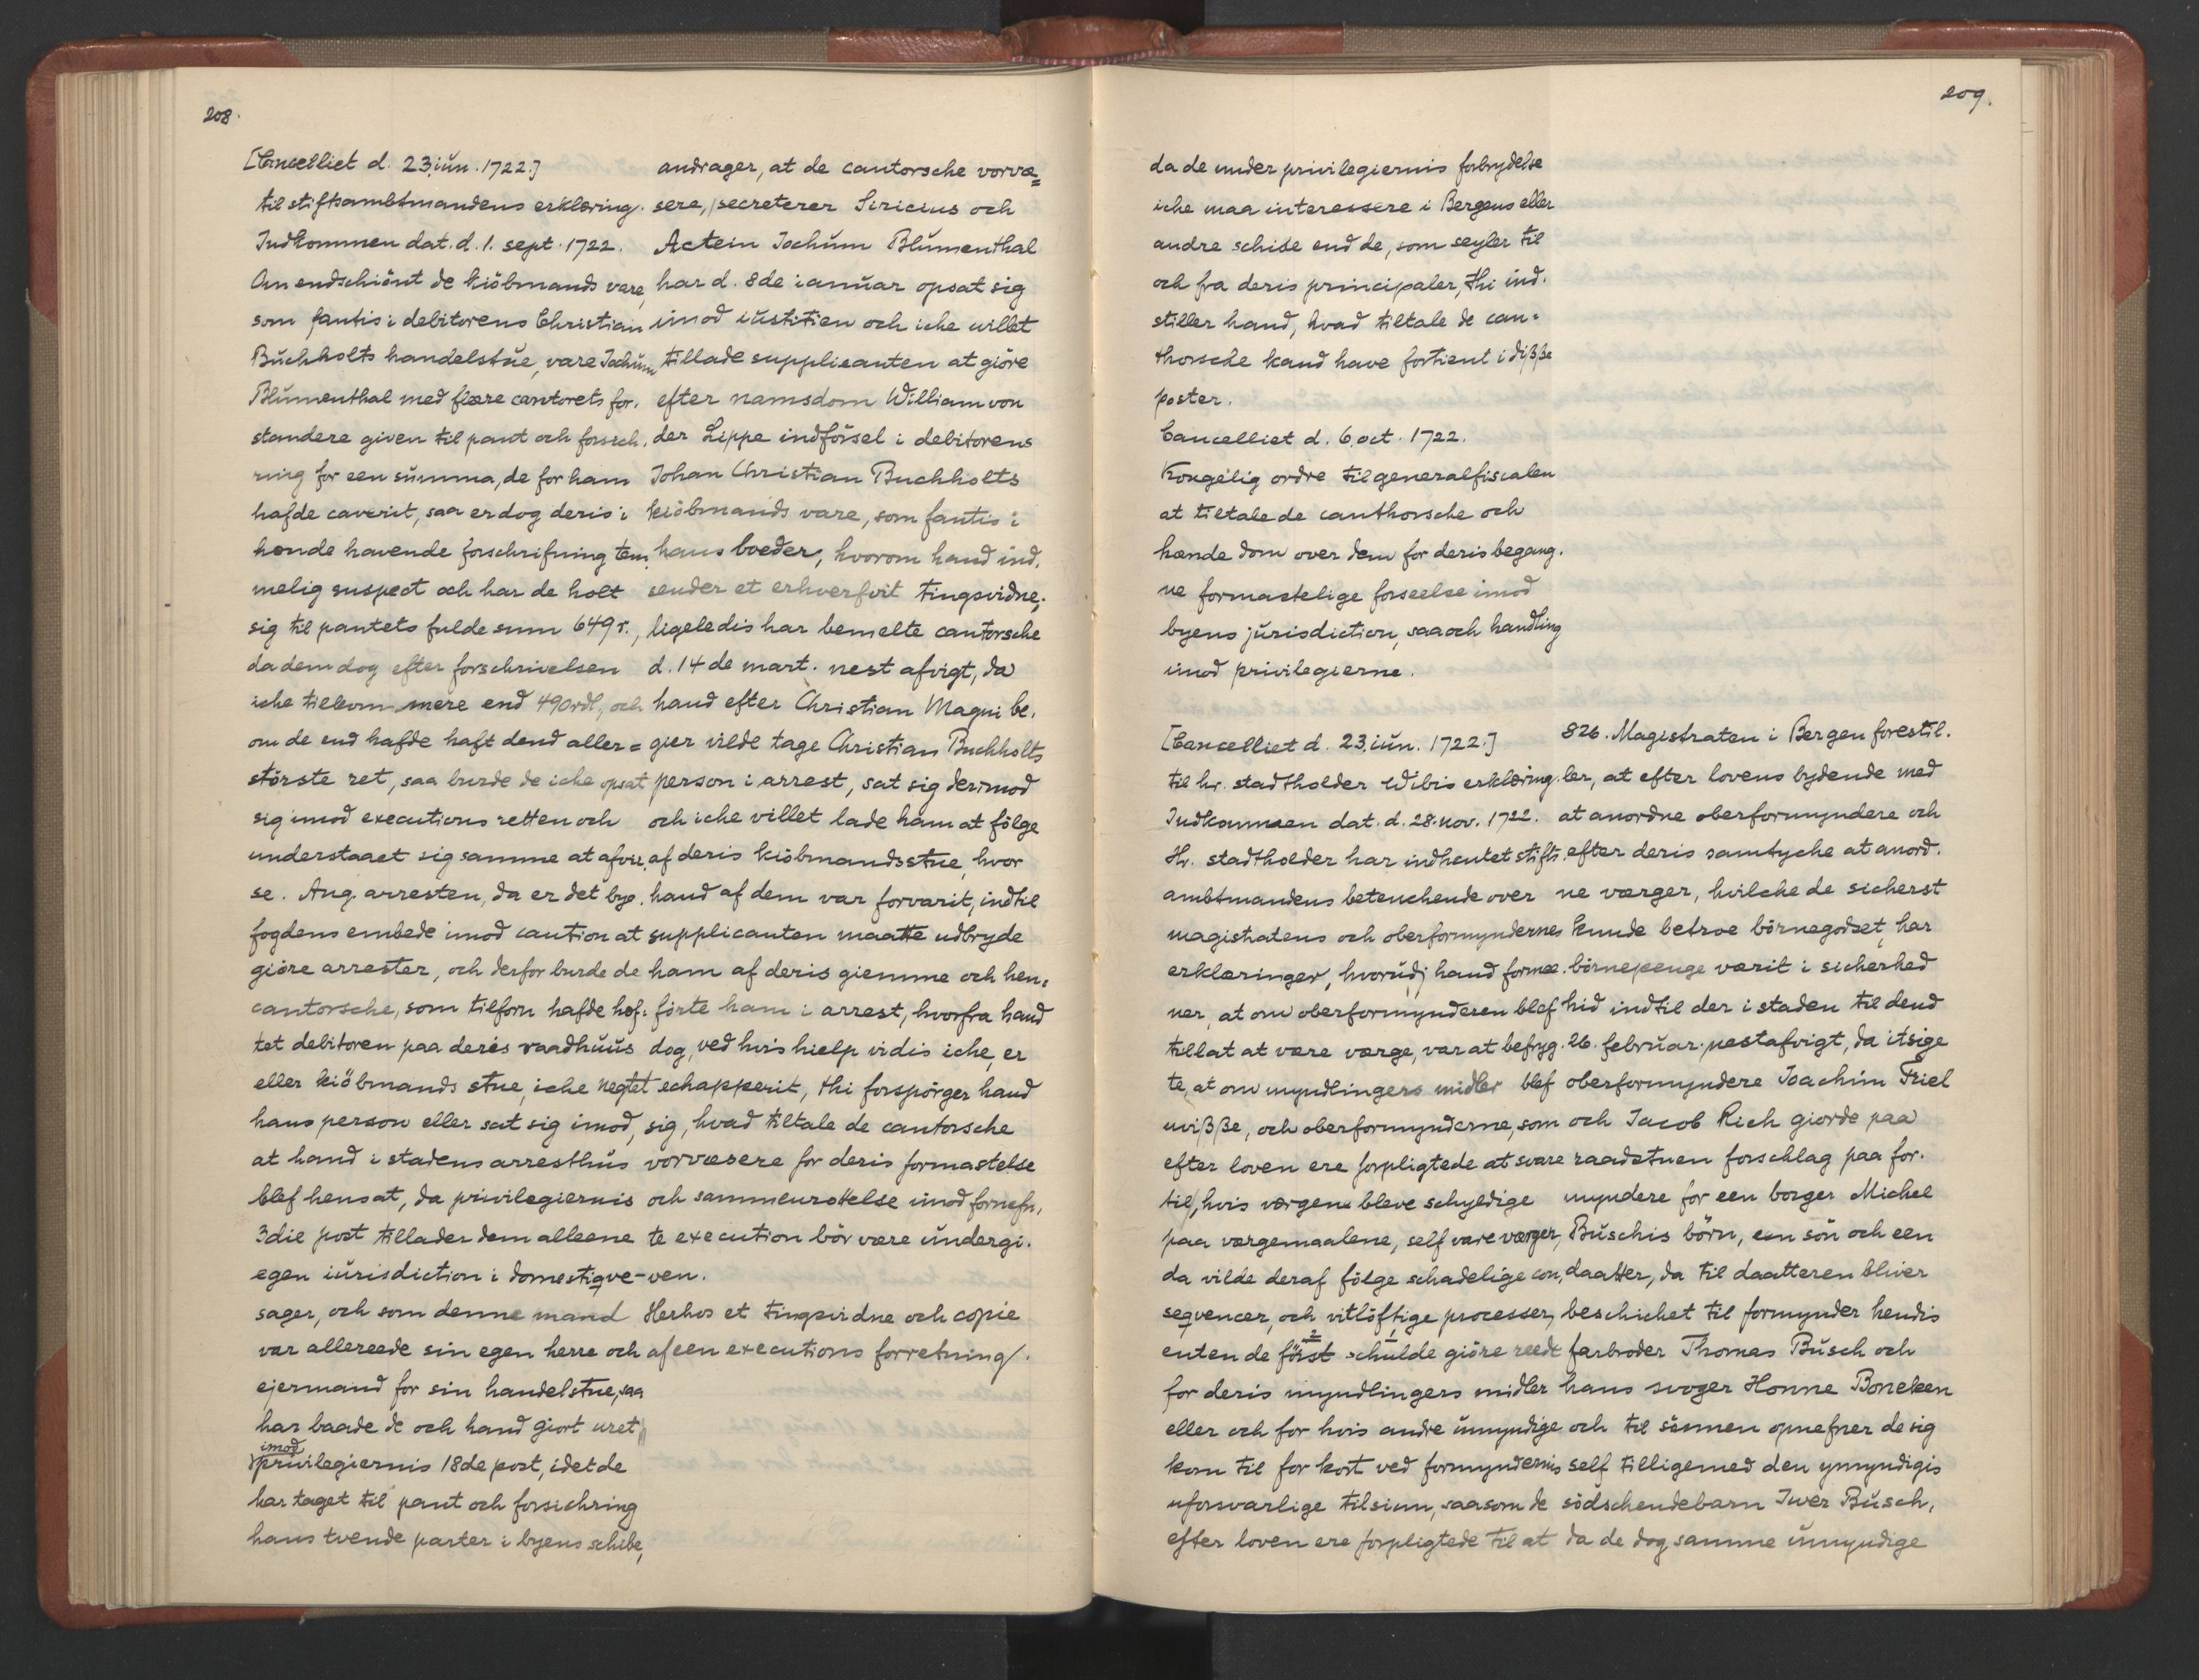 208.
[Cancelliet d. 23. iún. 1722.]
til stiftsambtmandens erklæring.
Indkommen dat. d. 1. sept. 1722.
Om endschiönt de kiöbmands vare,
som fantis i debitorens Christian
Búchholts handelstúe, vare Jochúm
Blúmenthal med flære cantorets for-
standere given til pant och forsich-
ring for een súmma, de for ham
hafde caverit, saa er dog deris i
hænde havende forschrifning tem-
melig suspect och har de holt
sig til pantets fulde sum 649 r.,
da dem dog efter forschrivelsen
iche tilkom mere end 490 rdl, och
om de end hafde haft dend aller=
störste ret, saa burde de iche opsat
sig imod executions retten och
understaaet sig samme at afvi-
se. Ang. arresten, da er det bye-
fogdens embede imod caution at
giöre arrester, och derfor burde de
cantorsche, som tilforn hafde hef-
tet debitoren paa deris raadhúús
eller kiöbmands stue, iche negtet
hans person eller sat sig imod,
at hand i stadens arresthús
blef hensat, da privilegiernis
3die post tillader dem alleene
egen iúrisdiction i domestiqve-
sager, och som denne mand
var allereede sin egen herre och
ejermand for sin handelstue, saa
har baade de och hand giort uret
imod
privilegiernis 18de post, idet de
har taget til pant och forsichring
hans tvende parter i byens schibe,
andrager, at de cantorsche vorvæ=
sere, secreterer Siricius och
Actein Jochúm Blúmenthal
har d. 8de ianúar opsat sig
imod iústitien och iche villet
tillade supplicanten at giöre
efter namsdom William von
der Lippe indförsel i debitorens
Johan Christian Buchholts
kiöbmands vare, som fantis i
hans boeder, hvorom hand ind-
sender et erhverfvit tingsvidne;
ligeledis har bemelte cantorsche
d. 14 de mart. nest afvigt, da
hand efter Christian Magni be-
gier vilde tage Christian Buchholts
person i arrest, sat sig derimod
och iche villet lade ham at fölge
af deris kiöbmandsstue, hvor
hand af dem var forvarit, indtil
supplicanten maatte udbryde
ham af deris giemme och hen-
förte ham i arrest, hvorfra hand
dog, ved hvis hielp vidis iche, er
echapperit, thi forspörger hand
sig, hvad tiltale de cantorsche
vorvæsere for deris formastelse
och sammenrottelse imod fornefn-
te execution bör være úndergi-
ven.
Herhos et tingsvidne och copie
af een executions forretning/.
209.
da de under privilegiernis forbrydelse
iche maa interessere i Bergens eller
andre schibe end de, som seyler til
och fra deris principaler, thi ind-
stiller hand, hvad tiltale de can-
thorsche kand have fortient i diββe
poster.
Cancelliet d. 6. oct. 1722.
Kongelig ordre til generalfiscalen
at tiltale de canthorsche och
hænde dom over dem for deris begang-
ne formastelige forseelse imod
byens júrisdiction, saa och handling
imod privilegierne.
[Cancelliet d. 23. iún. 1722.]
til hr. stadtholder Wibis erklæring.
Indkommen dat. d. 28. nov. 1722.
Hr. stadtholder har indhentet stifts-
ambtmandens betenchende over
magistratens och oberformyndernes
erklæringer, hvorúdj hand forme-
ner, at om oberformynderen blef
tillat at være værge, var at befryg-
te, at om myndlingers midler blef
uviββe, och oberformynderne, som
efter loven ere forpligtede at svare
til, hvis værgene bleve schyldige
paa værgemaalene, self vare værger,
da vilde deraf fölge schadelige con-
seqvencer, och vitlöftige processer,
2 1
enten de först schulde giöre reede
for deris myndlingers midler
eller och for hvis andre úmyndige
kom til for kort ved formyndernis
uforsvarlige tilsiun, saasom de
efter loven ere forpligtede til at
826. Magistraten i Bergen forestil-
ler, at efter lovens bydende med
at anordne oberformyndere och
efter deris samtyche at anord-
ne værger, hvilche de sicherst
kunde betroe börnegodset, har
börnepenge værit i sicherhed
hid indtil der i staden til dend
26. februar. nestafvigt, da itsige
oberformyndere Joachim Friel
och Jacob Rich giorde paa
raadstuen forschlag paa for-
myndere for een borger Michel
Búschis börn, een sön och een
daatter, da til daatteren bliver
beschichet til formynder hendis
farbroder Thomas Búsch och
hans svoger Honne Boneken
och til sönnen opnefner de sig
self tilligemed den ymyndigis
södschendebarn Iwer Búsch,
da de dog samme úmyndige